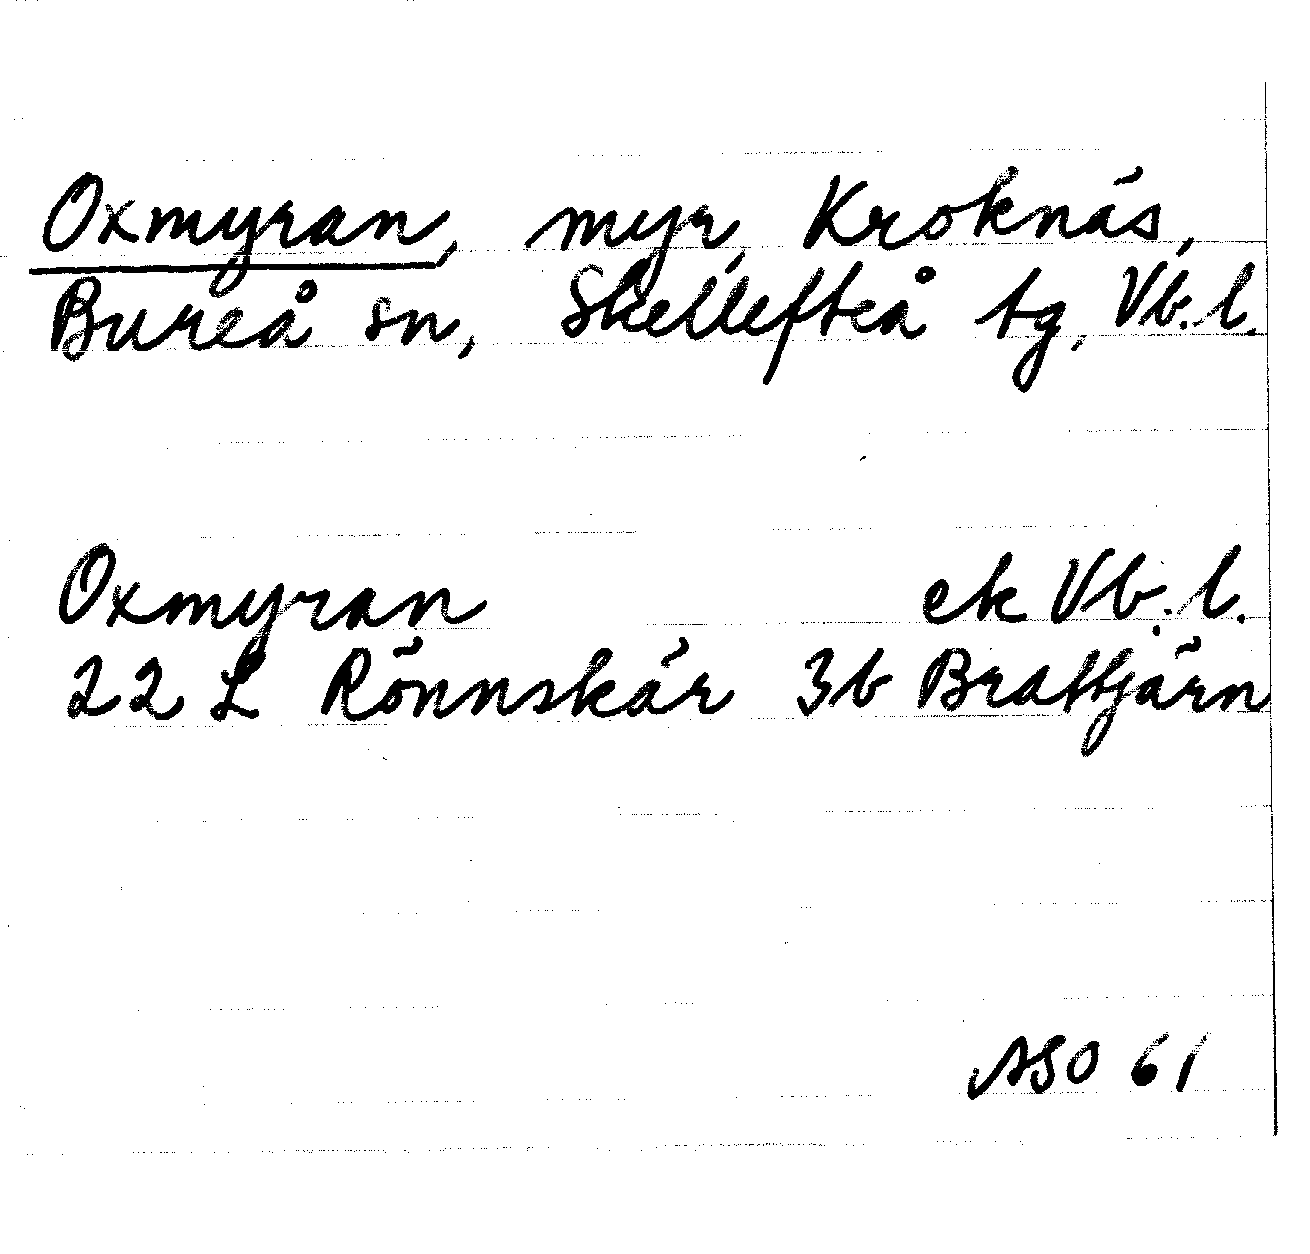 Oxmyran, myr, Kroknäs,
Bureå sn, Skellefteå tg, Vb.l.
Oxmyran ek Vb.l.
22 L Rönnskär 3b Brattjärn
ASO 61